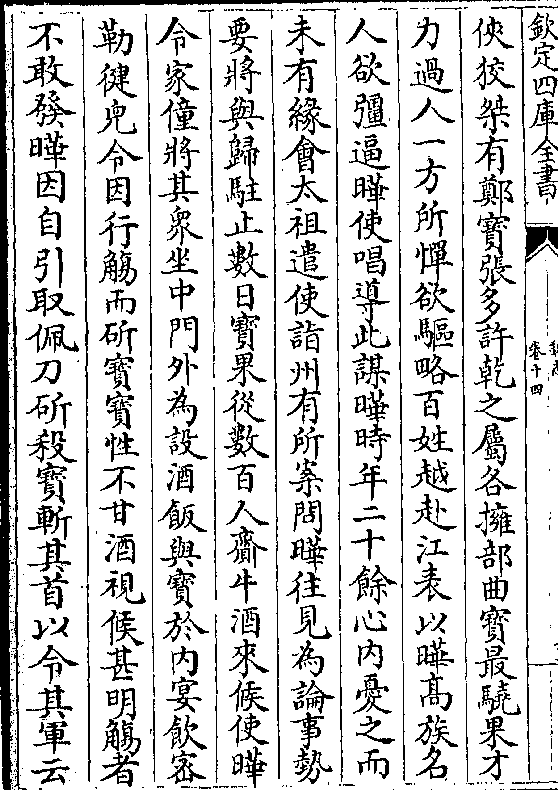 欽定四庫全書
卷十四
俠狡桀有鄭寶張多許乾之屬各擁部曲寶最驍果才
力過人一方所憚欲驅略百姓越赴江表以曄髙族名
人欲彊逼曄使唱導此謀曄時年二十餘心内憂之而
未有緣會太祖遣使詣州有所案問曄往見為論事勢
要將與歸駐止數日寶果從數百人齎牛酒來候使曄
令家僮將其衆坐中門外為設酒飯與寶於内宴飲宻
勒健兒令因行觴而斫寶寶性不甘酒視候甚明觴者
不敢發曄因自引取佩刀斫殺寶斬其首以令其軍云